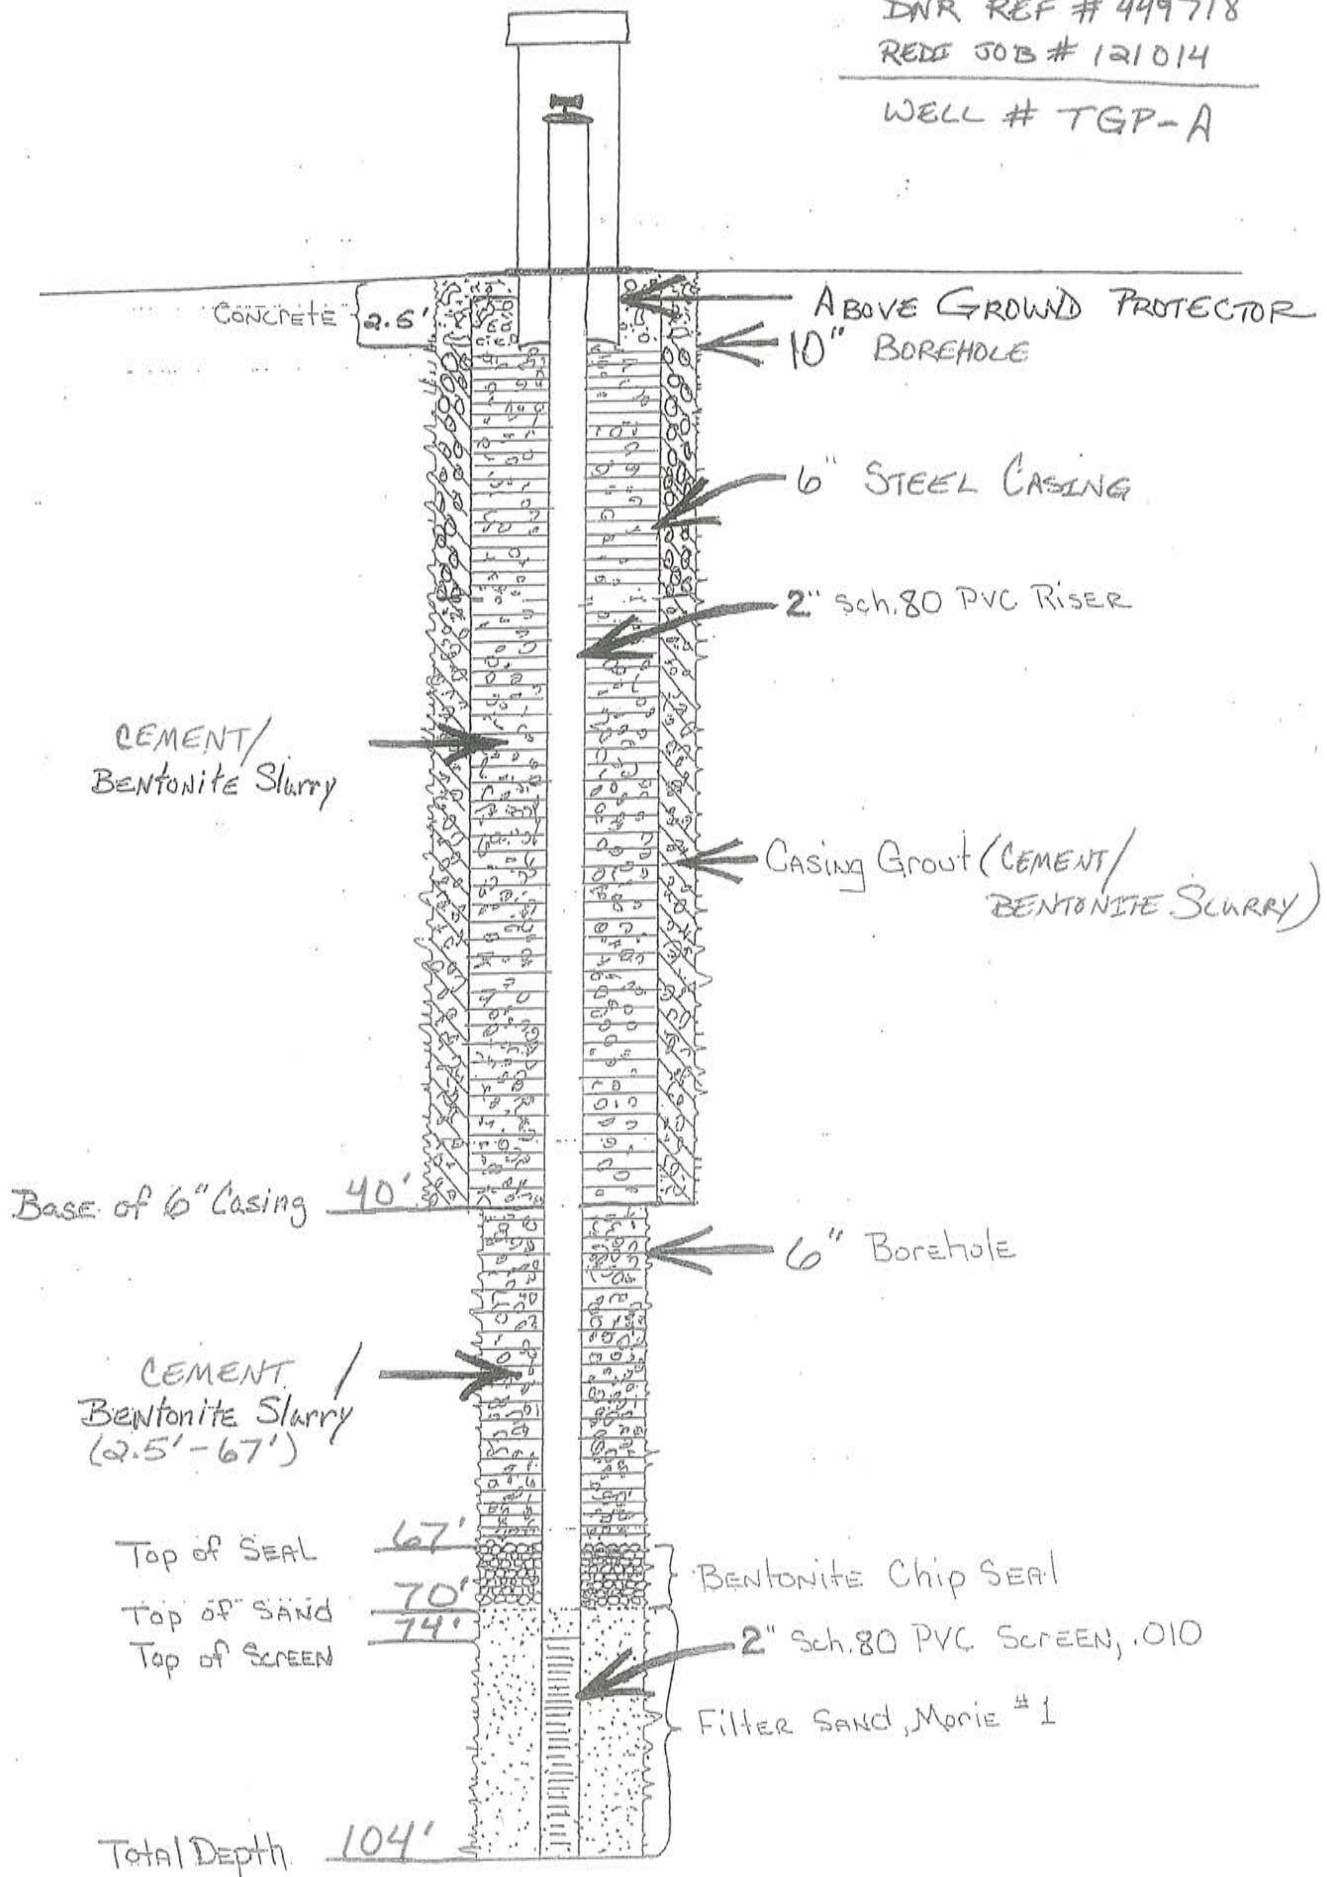 DNR REF # 449718
REDI JOB # 121014
WELL # TGP-A
CONCrETE 2.5'
ABOVE GROUND PROTECTOR
10" BOREHOLE
6" STEEL CASING
2" Sch.80 PVC RiSER
CEMENT/
BENtONitE Slurry
Casing Grout (CEMENT/
BENTONITE SLURRY)
Base of 6" Casing 40'
6" Borehole
CEMENT /
BENtonitE Slurry
(2.5'-67')
Top of SEAL 67'
Top of SANd 70'
Top of ScrEEN 74'
BENtONitE Chip SEAl
2" Sch.80 PVC ScrEEN, .010
FiltER SANd, Morie #1
TotAl Depth 104'